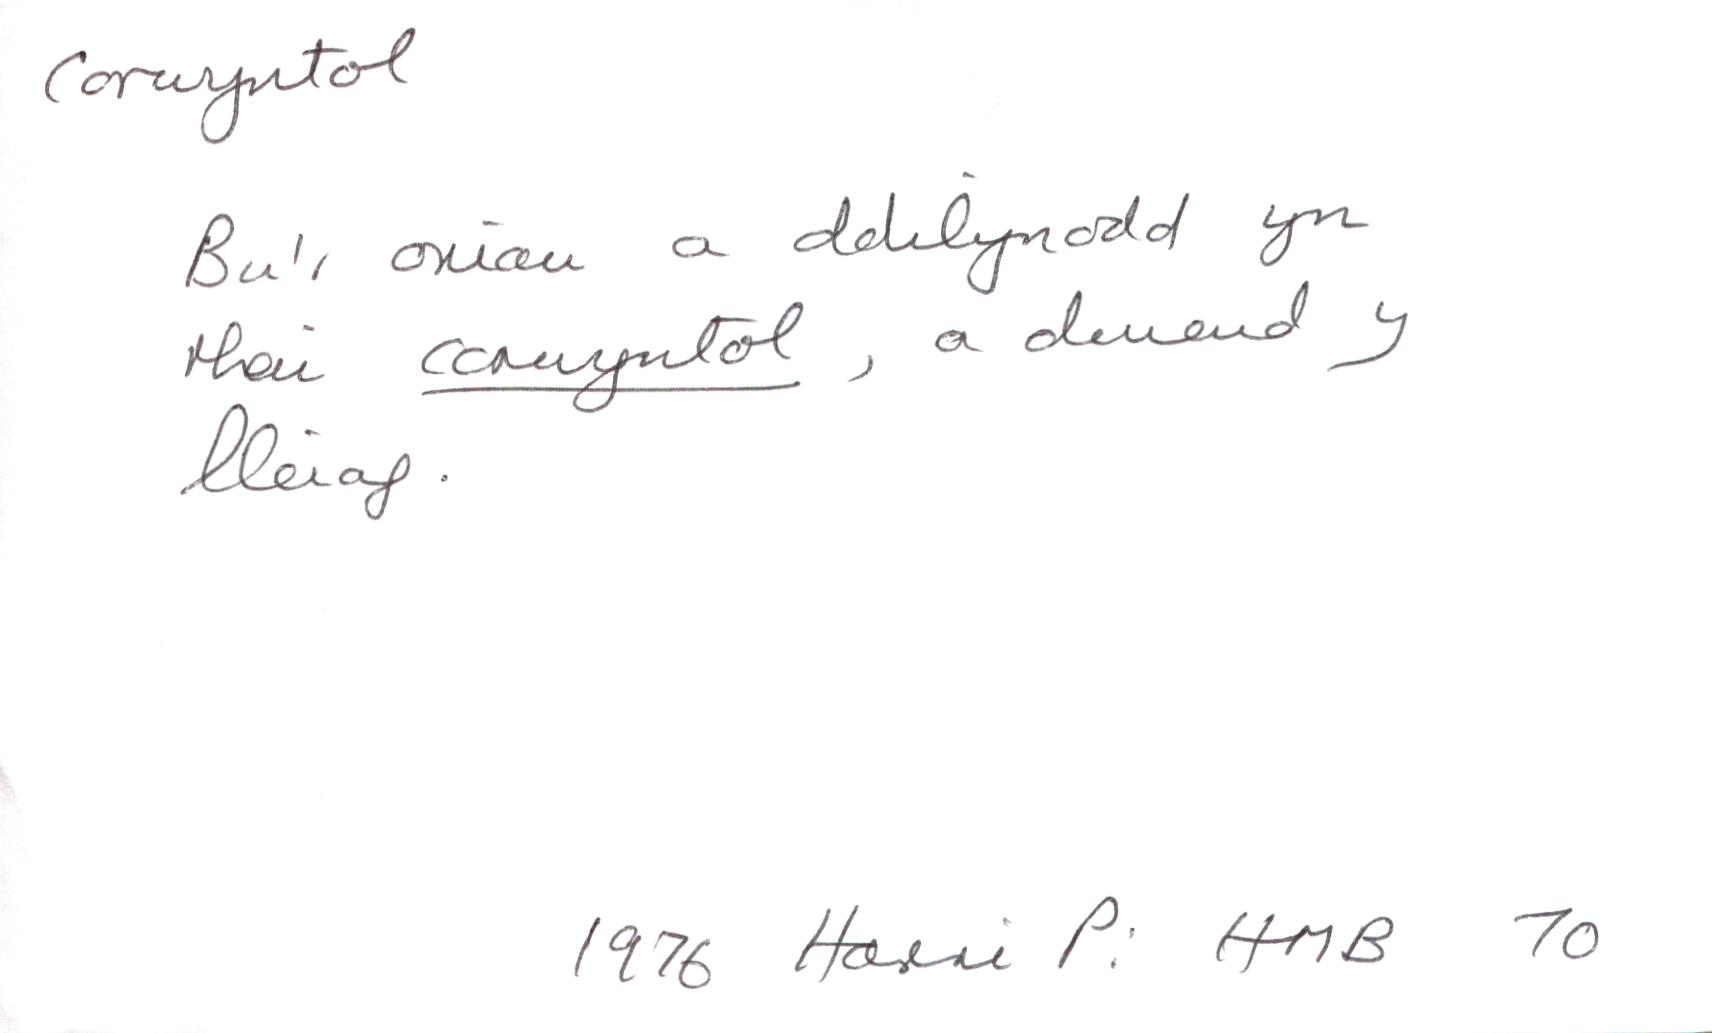 Corwyntol
Bu'r oriau a ddilynodd yn
rhai corwyntol, a dweud y
lleiaf.
1976 Harri P: HMB 70